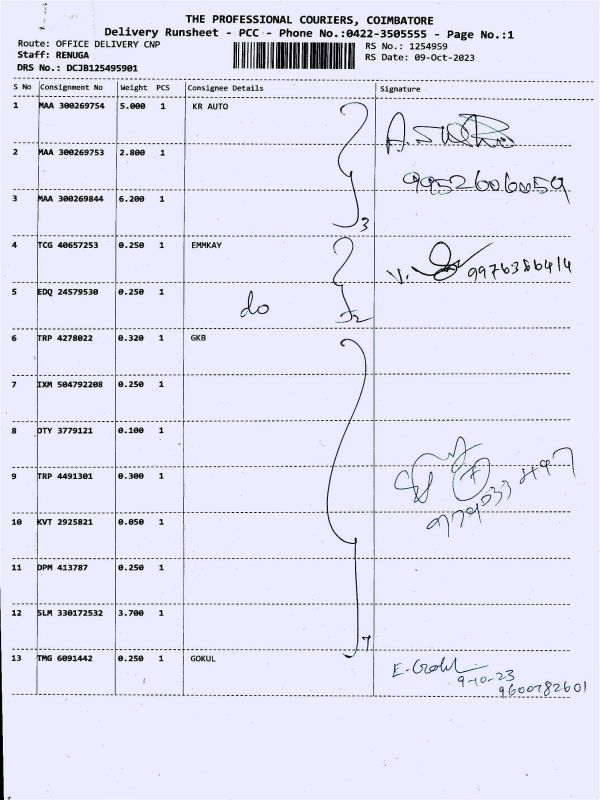 THE PROFESSIONAL COURIERS, COIMBATORE
Delivery Runsheet - PCC - Phone No.:0422-3505555 - Page No.:1
Route: OFFICE DELIVERY CNP
RS No.: 1254959
Staff: RENUGA
RS Date: 09-Oct-2023
DRS No.: DCJB125495901
S No Consignment No Weight PCS Consignee Details Signature
1 MAA 300269754 5.000 1 KR AUTO
2 MAA 300269753 2.800 1
9952606059
3 MAA 300269844 6.200 1
3
4 TCG 40657253 0.250 1 EMMKAY
9976386414
5 EDQ 24579530 0.250 1
do
2
6 TRP 4278022 0.320 1 GKB
7 IXM 504792208 0.250 1
8 OTY 3779121 0.100 1
9 TRP 4491301 0.300 1
10 KVT 2925821 0.050 1
11 DPM 413787 0.250 1
12 SLM 330172532 3.700 1
7
13 TMG 6091442 0.250 1 GOKUL
E. Gokul
9-10-23
9600782601